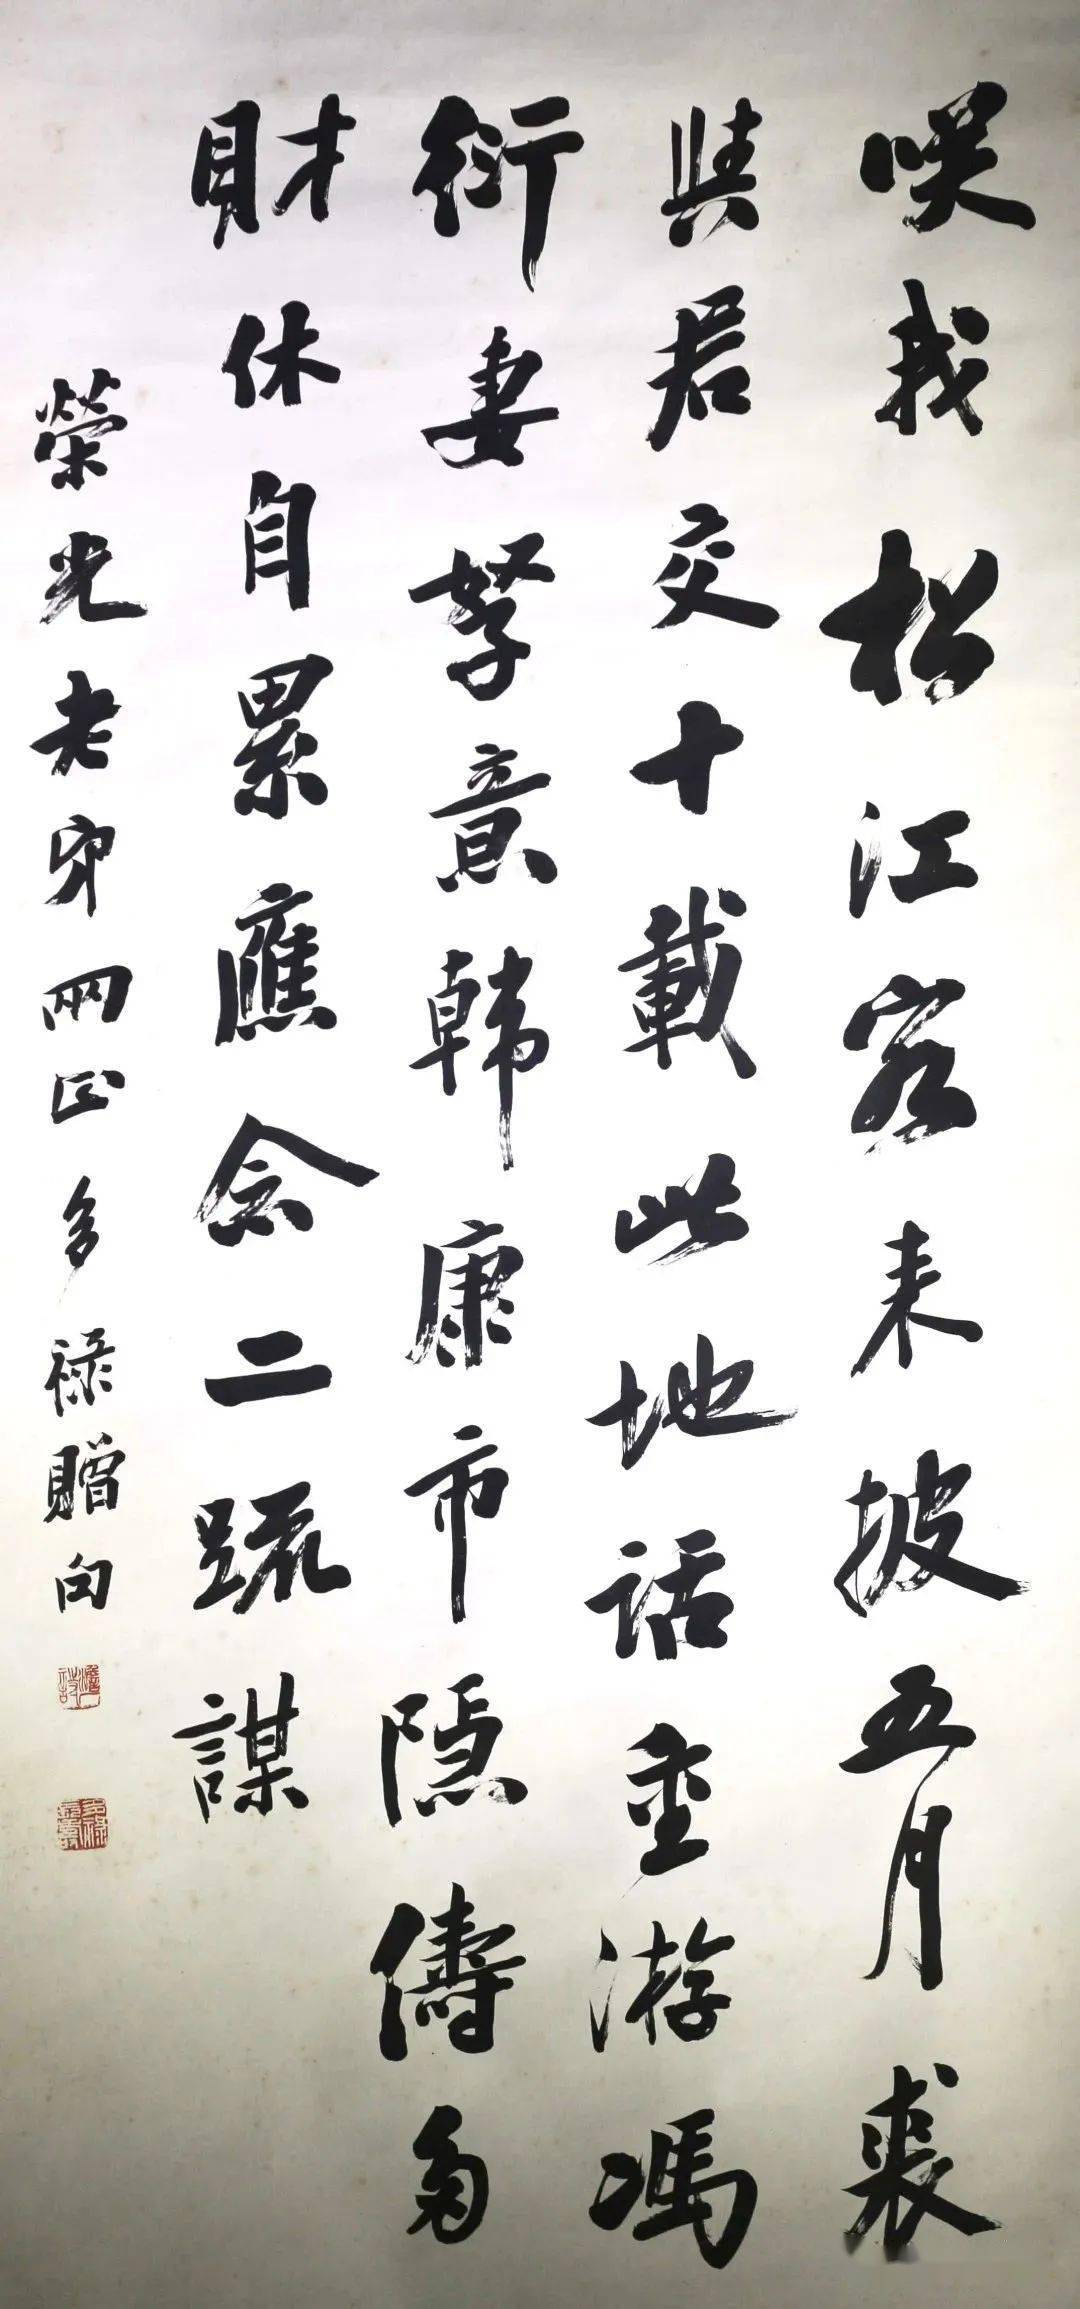 咲我松江客来披五月裘
與君交十載此地話重游馮
衍妻孥意韓康市隱儔多
財休自累應念二䟽謀
榮光老弟兩正多祿贈句